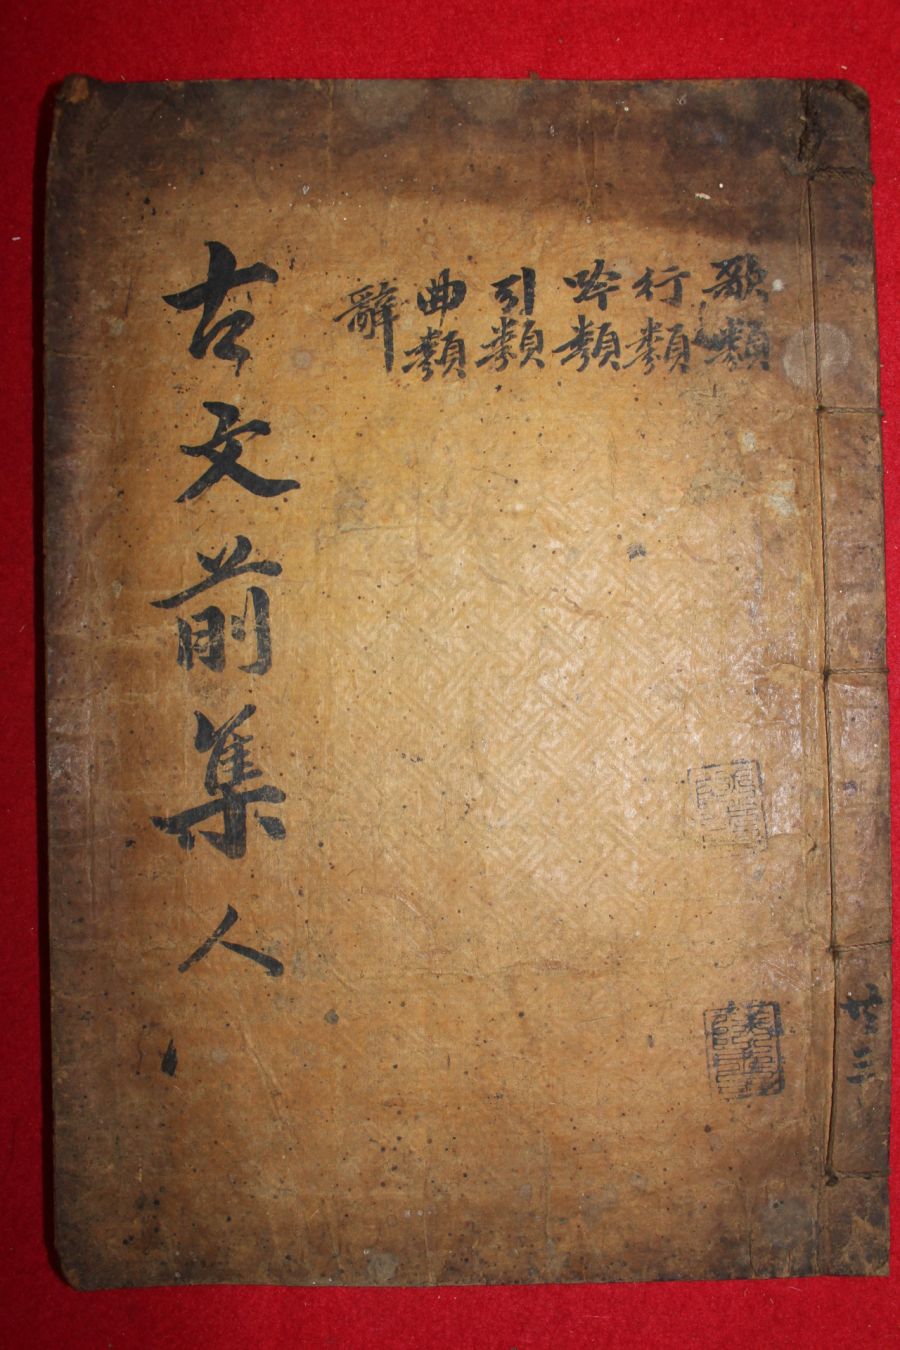 歌類
行類
吟類
引類
曲類
辭
古文前集 人
共三